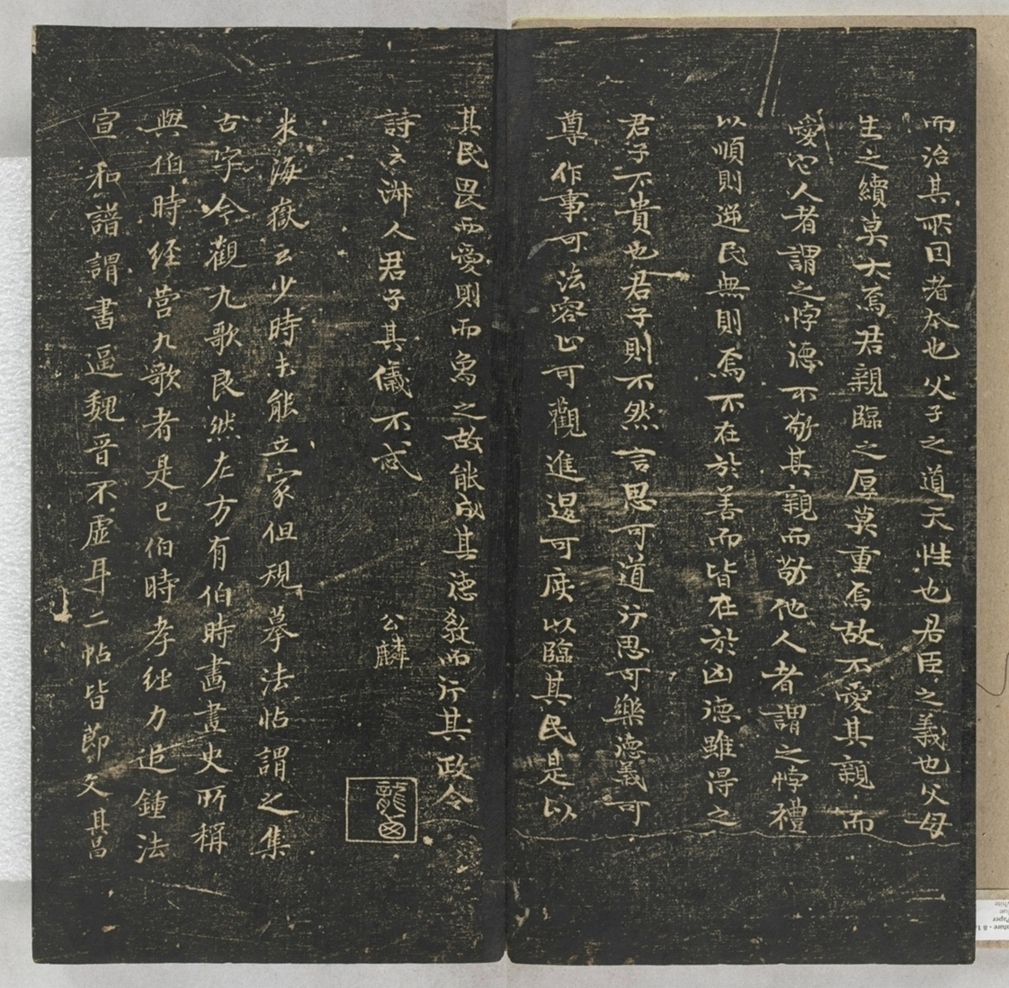 而治其所因者本也父子之道天性也君臣之義也父母
生之續莫大焉君親臨之厚莫重焉故不愛其親而
愛它人者謂之悖德不敬其親而敬他人者謂之悖禮
以順則逆民無則焉不在於善而皆在於凶德雖得之
君子不貴也君子則不然言思可道行思可樂德義可
尊作事可法容止可觀進退可度以臨其民是以
其民畏而愛則而象之故能成其德教而行其政令
詩云淑人君子其儀不忒
公麟
米海嶽云少時未能立家但規摹法帖謂之集
古字今觀九歌良然左方有伯時畫畫史所稱
與伯時經營九歌者是已伯時孝經力追鍾法
宣和譜謂書逼魏晉不虛耳二帖皆節文其昌
二